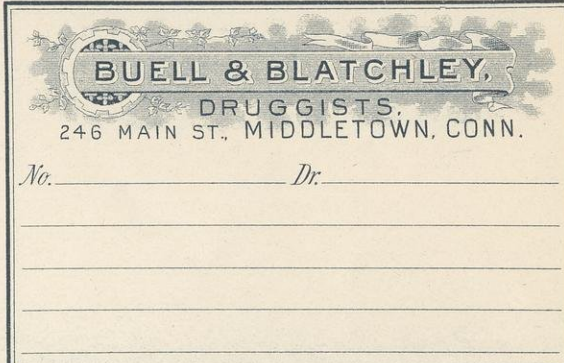 BUELL & BLATCHLEY,
DRUGGISTS,
246 MAIN ST., MIDDLETOWN, CONN.
No. Dr.